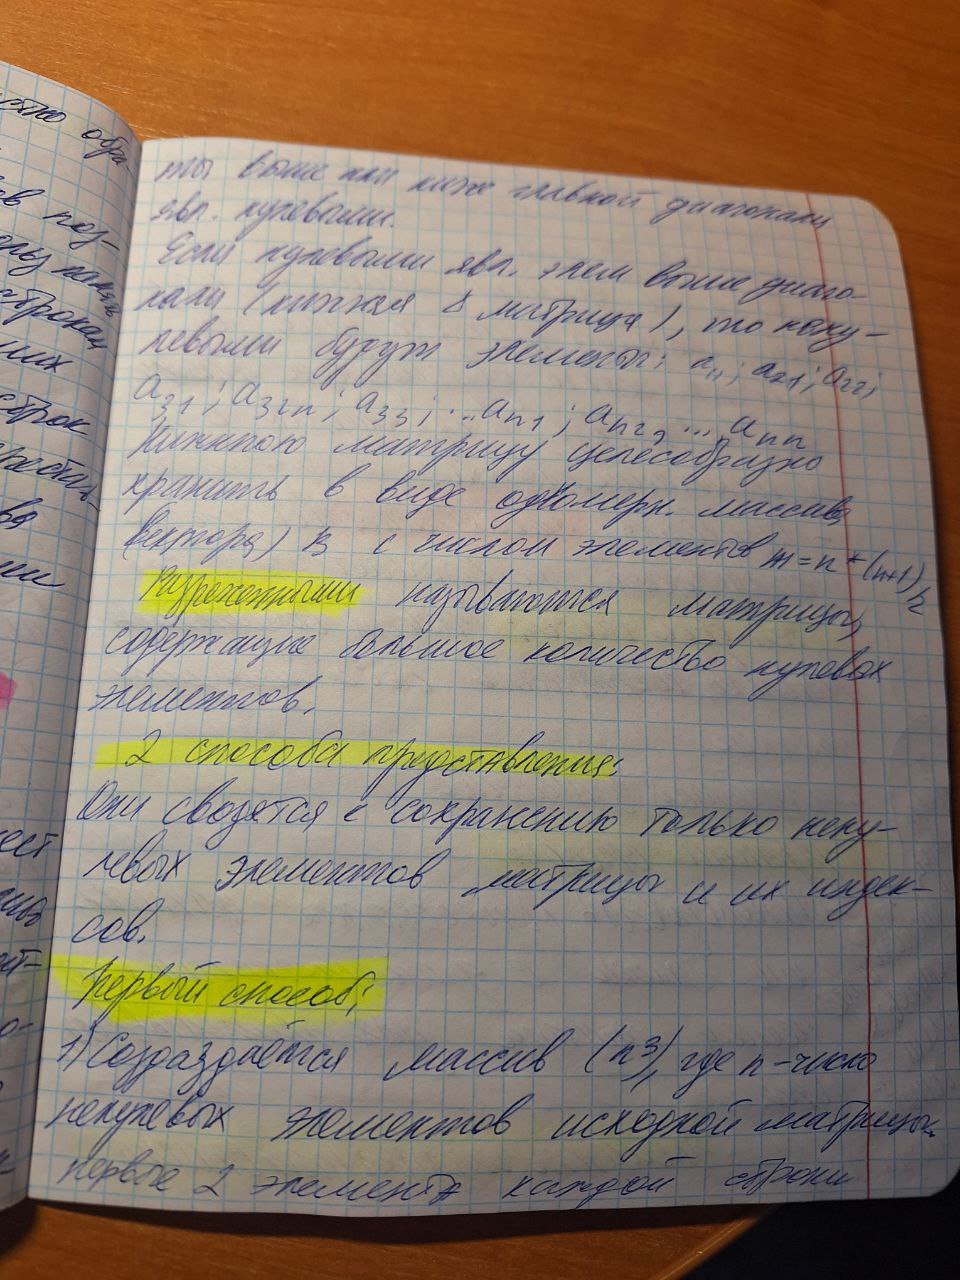 стно обра-
ов поз-
строкам
них
строк
ты выше или ниже главной диагонали
явл. нулевыми.
Если нулевыми явл. элем выше диаго-
нали (нижняя Δ матрица), то нену-
левыми будут элементы: a11; a21; a22;
a31; a32n; a33; ...an1; an2, ... ann
Нижнюю матрицу целесообразно
хранить в виде одномерн. массива
(вектора) B с числом элементов m = n * (n+1)/2
Разреженными называются матрицы,
содержащие большое количество нулевых
элементов.
2 способа представления:
Они сводятся к сохранению только нену-
левых элементов матрицы и их индек-
сов.
Первый способ:
1) Создаздаётся массив (n3), где n-число
ненулевых элементов исходной матрицы.
первые 2 элемента каждой строки